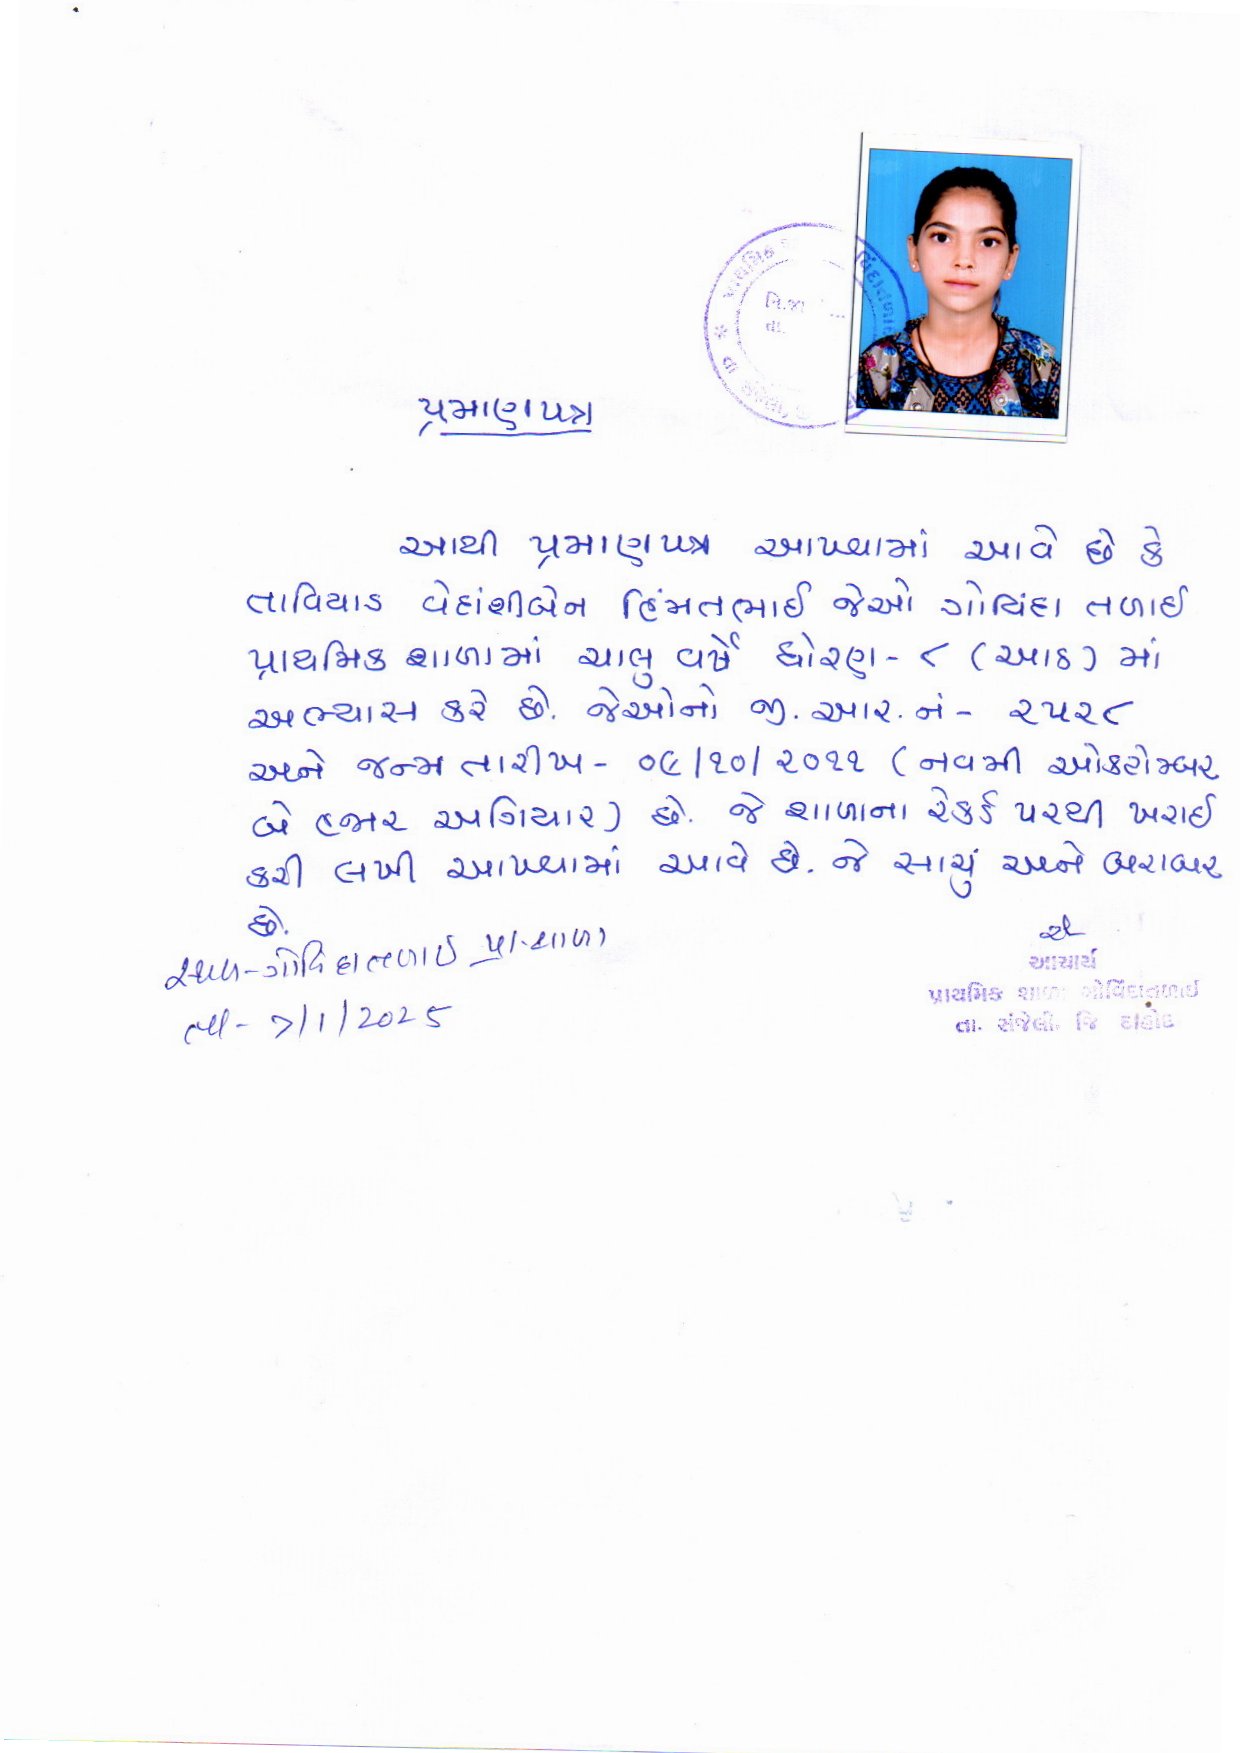 પ્રાથમિક
નિ.જા
તા.
પ્રમાણપત્ર
આથી પ્રમાણપત્ર આપવામાં આવે છે કે
તાવિયાડ વેદાંશીબેન હિંમતભાઈ જેઓ ગોવિંદા તળાઈ
પ્રાથમિક શાળામાં ચાલુ વર્ષે ધોરણ - ૮ (આઠ) માં
અભ્યાસ કરે છે. જેઓનો જી. આર. નં - ૨૫૨૮
અને જન્મ તારીખ - ૦૯/૧૦/૨૦૧૧ (નવમી ઓકટોમ્બર
બે હજાર અગિયાર) છે. જે શાળાના રેકર્ડ પરથી ખરાઈ
કરી લખી આપવામાં આવે છે. જે સાચું અને બરાબર
છે.
સ્થળ - ગોવિંદાતળાઈ પ્રા.શાળા
તા - ૭/1/2025
આચાર્ય
પ્રાથમિક શાળા ગોવિંદાતળાઈ
તા. સંજેલી, જિ દાહોદ